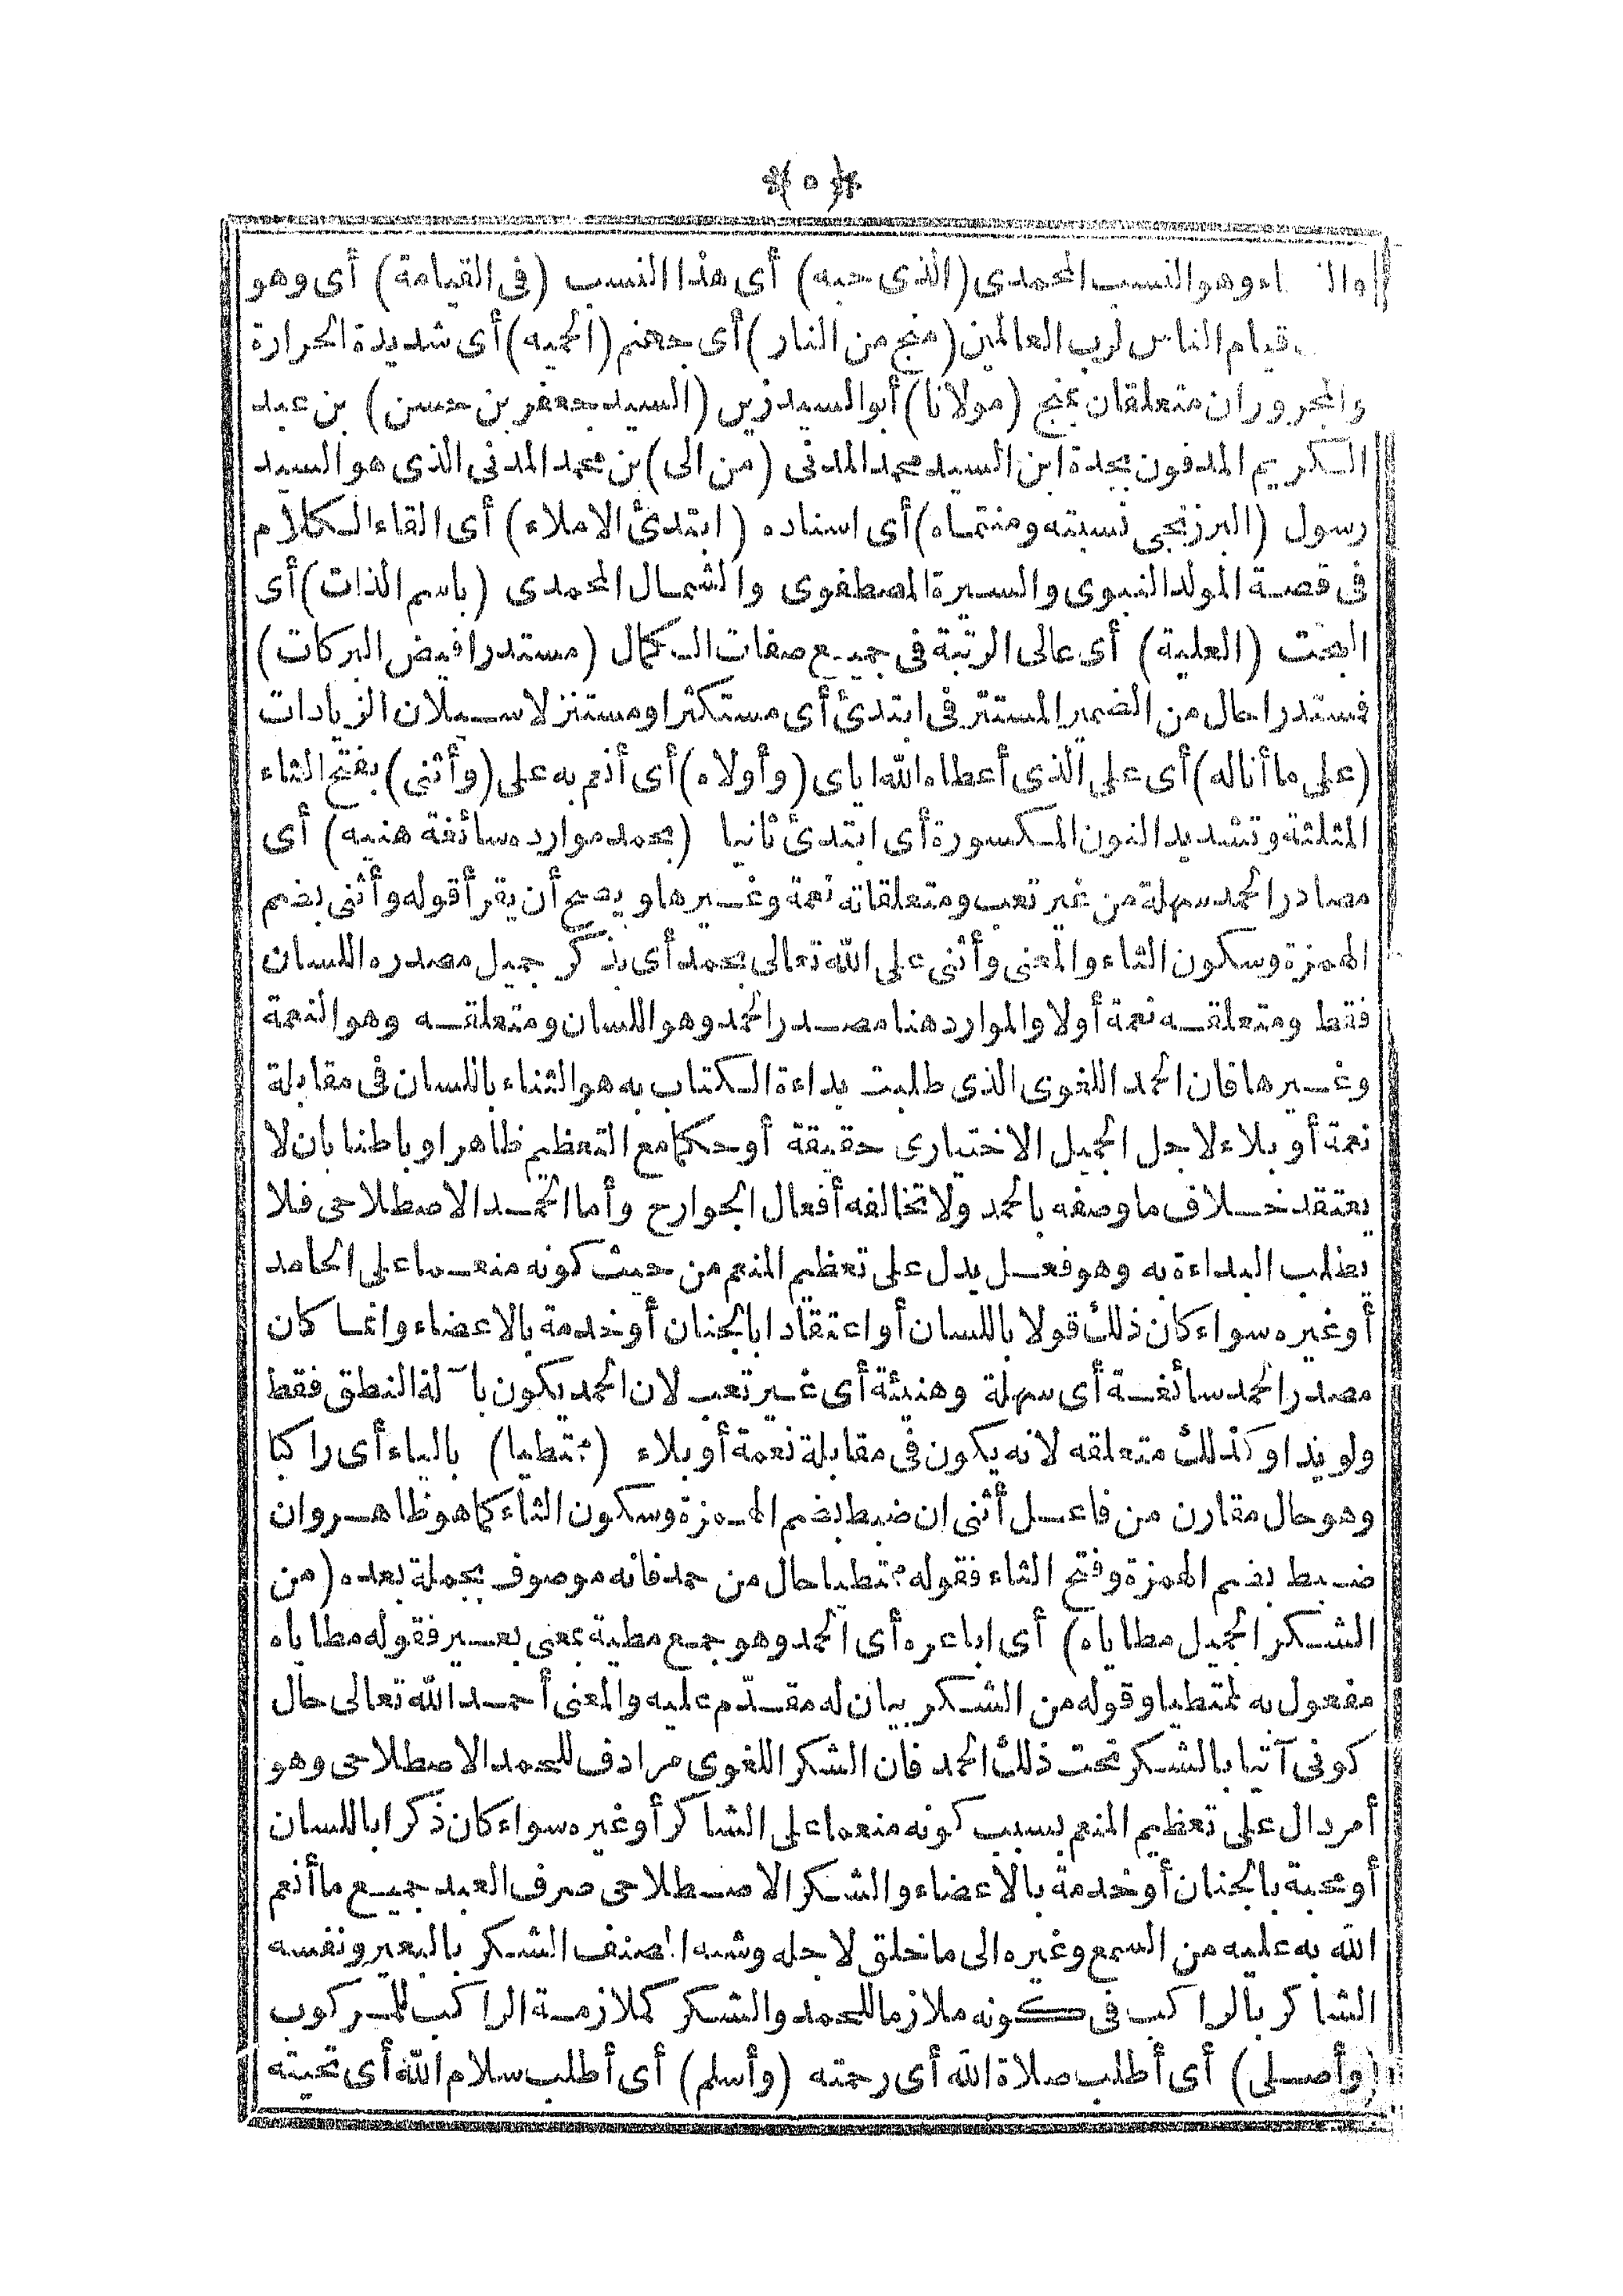 ﴿٥﴾
اءوهو النسب المحمدى (الذى حبه) أى هذا النسب (فى القيامة) أى وهو
قيام الناس لرب العالمين (منج من النار) أى جهنم (الحميه) أى شديدة الحرارة
والمجروران متعلقان بمنج (مولانا) أبوالسيدزين (السيد جعفر بن حسن) بن عبد
الكريم المدفون بجدة ابن السيد محمد المدنى (من الى) بن محمد المدنى الذى هو السيد
رسول (البرزنجى نسبته ومنتماه) أى اسناده (ابتدئ الاملاء) أى القاء الكلام
فى قصة المولد النبوى والسيرة المصطفوى والشمال المحمدى (باسم الذات) أى
البحت (العلية) أى عالى الرتبة فى جميع صفات الكمال (مستدرا فيض البركات)
فستدرا حال من الضمير المستتر فى ابتدئ أى مستكثرا ومستنزلا سيلان الزيادات
(على ما أناله) أى على الذى أعطاه الله اياى (وأولاه) أى أنعم به على (وأثنى) بفتح الثاء
المثلثة وتشديد النون المكسورة أى ابتدئ ثانيا (بحمد موارده سائغة هنيه) أى
مصادر الحمد سهلة من غير تعب ومتعلقاته نعمة وغيرها ويصح أن يقرأ قوله وأثنى بضم
الهمزة وسكون الثاء والمعنى وأثنى على الله تعالى بحمد أى بذكر جميل مصدره اللسان
فقط ومتعلقه نعمة أولا والموارد هنا مصدر الحمد وهو اللسان ومتعلقه وهو النعمة
وغيرها فان الحمد اللغوى الذى طلبت بداءة الكتاب به هو الثناء باللسان فى مقابلة
نعمة أو بلاء لاجل الجميل الاختيارى حقيقة أو حكما مع التعظيم ظاهرا وباطنا بان لا
يعتقد خلاف ما وصفه بالحمد ولا تخالفه أفعال الجوارح وأما الحمد الاصطلاحى فلا
يطلب البداءة به وهو فعل يدل على تعظيم المنعم من حيث كونه منعما على الحامد
أو غيره سواء كان ذلك قولا باللسان أو اعتقادا بالجنان أو خدمة بالاعضاء وانما كان
مصدر الحمد سائغة أى سهلة وهنيئة أى غير تعب لان الحمد يكون بآلة النطق فقط
ولو يدا وكذلك متعلقه لانه يكون فى مقابلة نعمة أو بلاء (ممتطيا) بالياء أى راكبا
وهو حال مقارن من فاعل أثنى ان ضبط بضم الهمزة وسكون الثاء كما هو ظاهر وان
ضبط بضم الهمزة وفتح الثاء فقوله ممتطيا حال من حمد فانه موصوف بجملة بعده (من
الشكر الجميل مطاياه) أى اباعره أى الحمد وهو جمع مطية بمعنى بعير فقوله مطاياه
مفعول به لممتطيا وقوله من الشكر بيان له مقدم عليه والمعنى أحمد الله تعالى حال
كونى آتيا بالشكر تحت ذلك الحمد فان الشكر اللغوى مرادف للحمد الاصطلاحى وهو
أمر دال على تعظيم المنعم بسبب كونه منعما على الشاكر أو غيره سواء كان ذكرا باللسان
أو محبة بالجنان أو خدمة بالاعضاء والشكر الاصطلاحى صرف العبد جميع ما أنعم
الله به عليه من السمع وغيره الى ما خلق لاجله وشبه المصنف الشكر بالبعير ونفسه
الشاكر بالراكب فى كونه ملازما للحمد والشكر كملازمة الراكب للمركوب
(وأصلى) أى أطلب صلاة الله أى رحمته (وأسلم) أى أطلب سلام الله أى تحيته